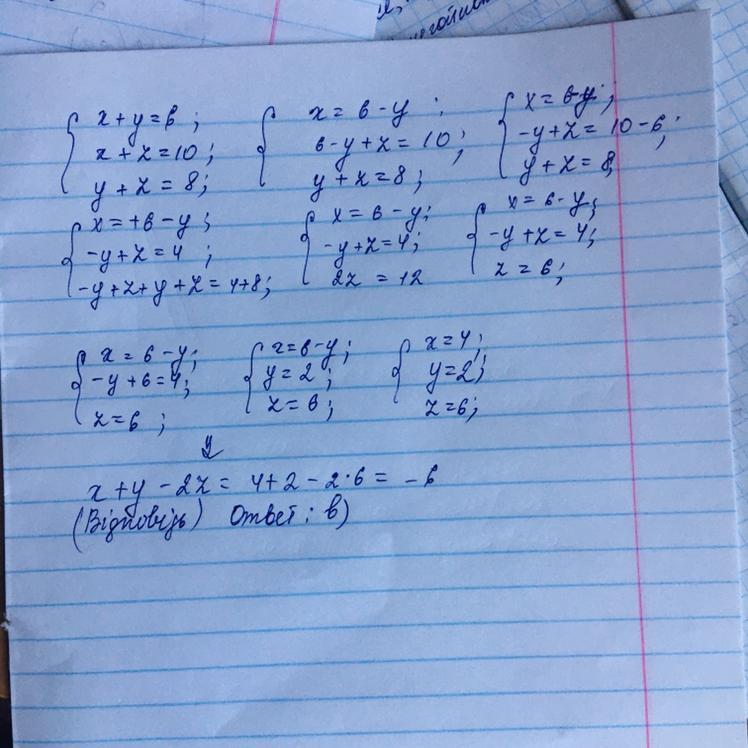 x + y = 6 ;
x + z = 10 ;
y + z = 8 ;
x = 6 - y ;
6 - y + z = 10 ;
y + z = 8 ;
x = 6 - y ;
-y + z = 10 - 6 ;
y + z = 8 ;
x = +6 - y ;
-y + z = 4 ;
-y + z + y + z = 4+8 ;
x = 6 - y ;
-y + z = 4 ;
2z = 12
x = 6 - y ;
-y + z = 4 ;
z = 6 ;
x = 6 - y ;
-y + 6 = 4 ;
z = 6 ;
x = 6 - y ;
y = 2 ;
z = 6 ;
x = 4 ;
y = 2 ;
z = 6 ;
x + y - 2z = 4 + 2 - 2·6 = -6
(Відповідь) Ответ : в)